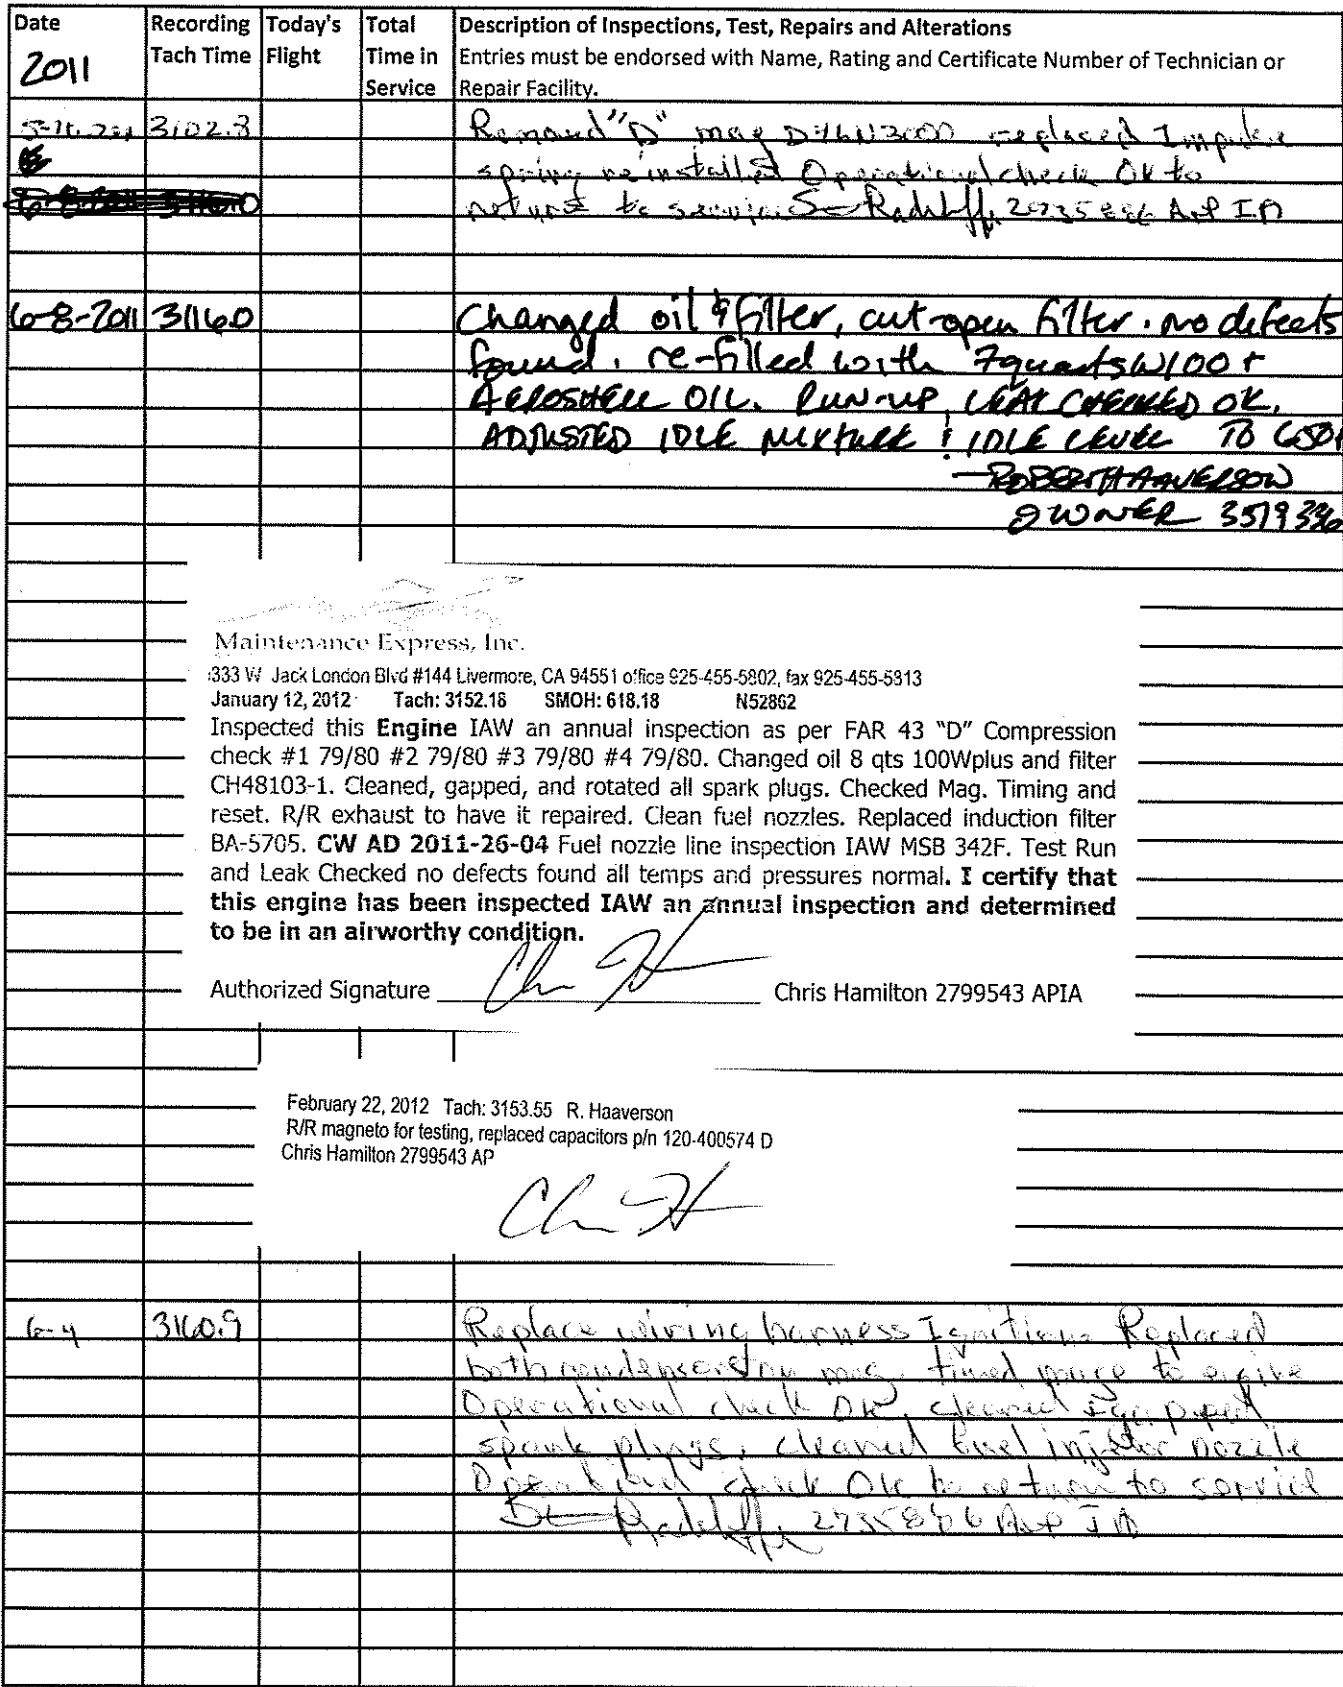 Date Recording Today's Total Description of Inspections, Test, Repairs and Alterations
2011 Tach Time Flight Time in Entries must be endorsed with Name, Rating and Certificate Number of Technician or
Service Repair Facility.
3102.8 Removed "D" mag replaced Impulse
spring reinstalled Operational check OK to
return to service Radcliff A&P IA
6-8-2011 3116.0
6-8-2011 3116.0 Changed oil & filter, cut open filter. no defects
found. re-filled with 7 quarts W100+
AEROSHELL OIL. RUN-UP, LEAK CHECKED OK.
ADJUSTED IDLE MIXTURE & IDLE LEVEL TO
—ROBERT HAAVERSON
OWNER 3519336
Maintenance Express, Inc.
333 W Jack London Blvd #144 Livermore, CA 94551 office 925-455-5802, fax 925-455-5813
January 12, 2012 Tach: 3152.18 SMOH: 618.18 N52862
Inspected this Engine IAW an annual inspection as per FAR 43 "D" Compression
check #1 79/80 #2 79/80 #3 79/80 #4 79/80. Changed oil 8 qts 100Wplus and filter
CH48103-1. Cleaned, gapped, and rotated all spark plugs. Checked Mag. Timing and
reset. R/R exhaust to have it repaired. Clean fuel nozzles. Replaced induction filter
BA-5705. CW AD 2011-26-04 Fuel nozzle line inspection IAW MSB 342F. Test Run
and Leak Checked no defects found all temps and pressures normal. I certify that
this engine has been inspected IAW an annual inspection and determined
to be in an airworthy condition.
Authorized Signature Chris Hamilton 2799543 APIA
February 22, 2012 Tach: 3153.55 R. Haaverson
R/R magneto for testing, replaced capacitors p/n 120-400574 D
Chris Hamilton 2799543 AP
6-4 3160.9 Replace wiring harness Ignition. Replaced
both condensers on mag. timed mags to engine
Operational check OK, cleaned & gapped
spark plugs, cleaned fuel injector nozzle
Operational check OK to return to service
Radcliff A&P IA